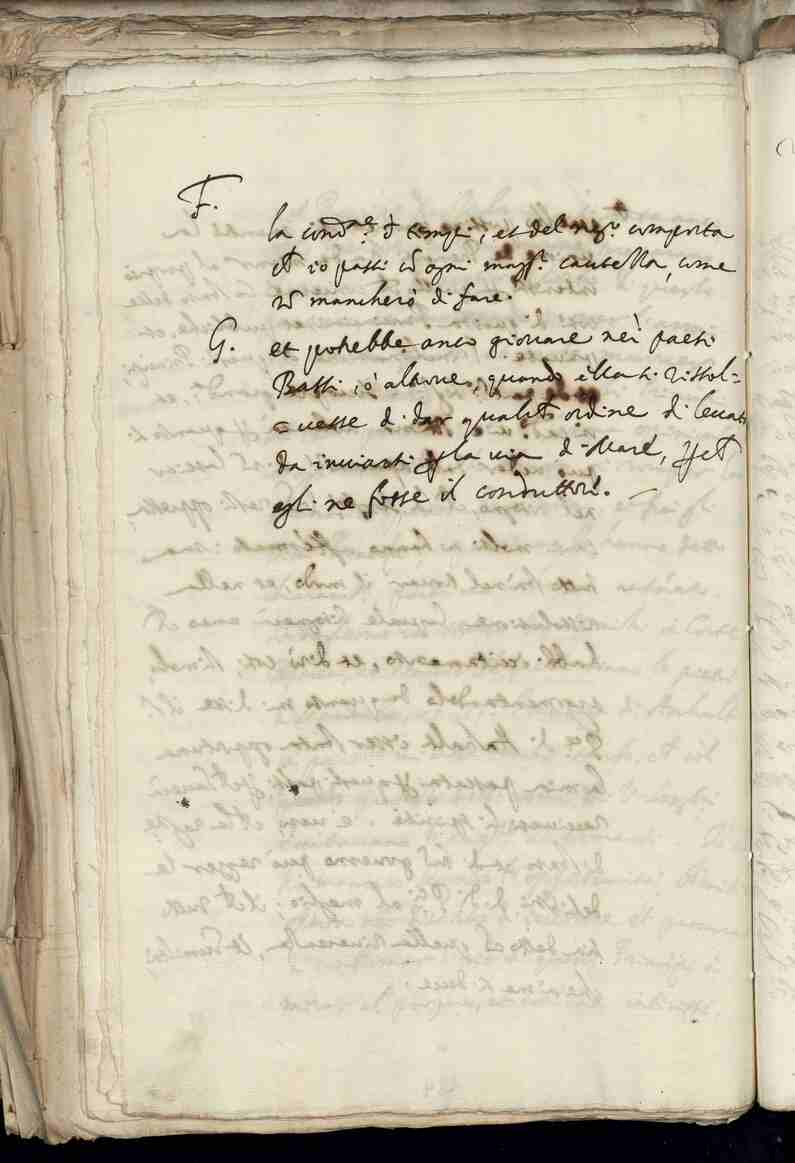 F.
la cond.ne d tempi, et del neg.o comporta
ch' io passi cō ogni magg.r cautella, come
nō mancherò di fare.
G. et potrebbe anco giovare nei paesi
Bassi, ò altrove, quando ella si rissol=
=vesse di dar qualch' ordine di levata
da inviarsi p la via di Mare, p ch'
egli ne fosse il conduttore.